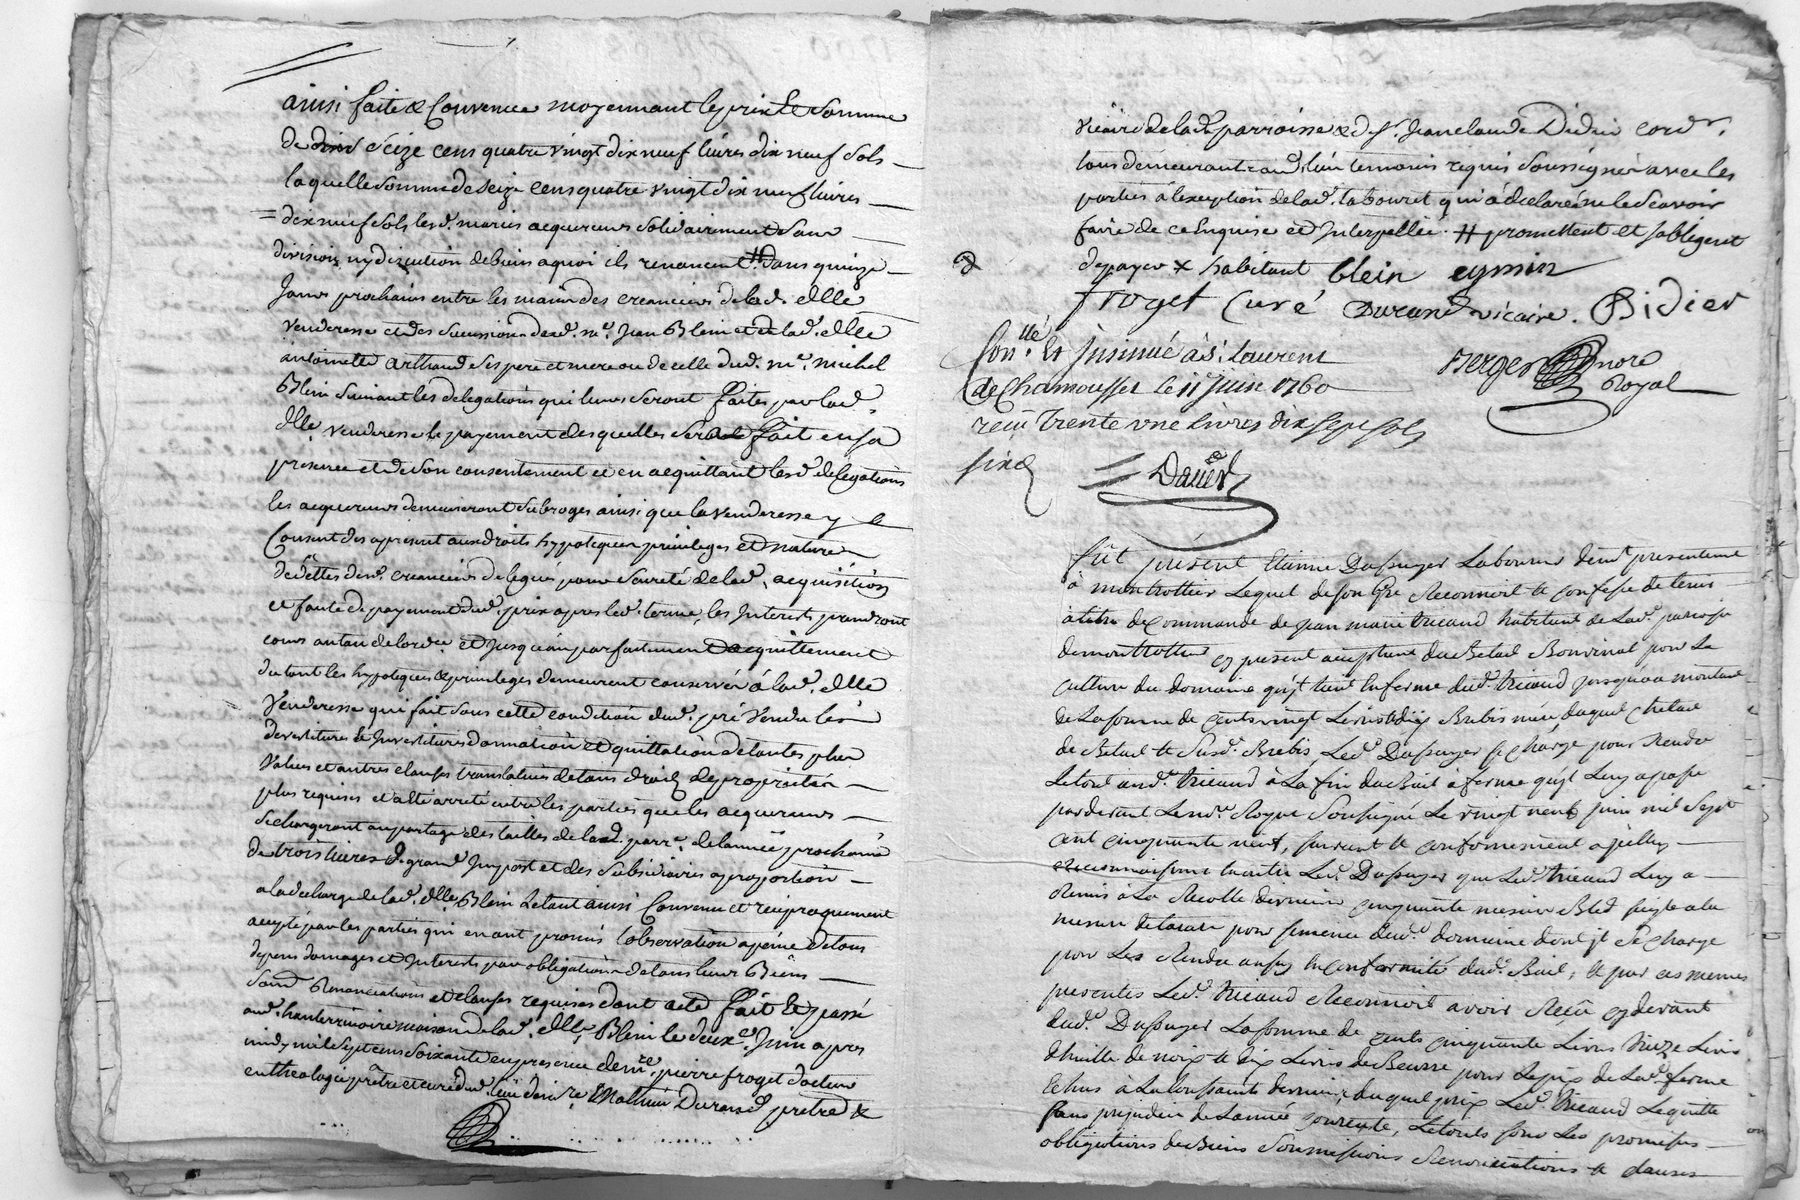 ainsi faite & Convenue moyennant le prix & Somme
de Seize cens quatre vingt dix neuf livres dix neuf sols
laquelle Somme de Seize cens quatre vingt dix neuf livres
dix neuf sols lesd. mariés acquereurs solidairement sans
division ny discution de biens a quoi ils renoncent # dans quinze
Jours prochains entre les mains des creanciers de lad. dlle
venderesse et des successions dud. me. Jean Blein et de lad. dlle
antoinette Arthaud ses pere et mere ou de celle dud. me. michel
Blein Suivant les delegations qui leurs seront faites par lad.
dlle. venderesse le payement desquelles sera fait en sa
presence et de son consentement et en acquittant lesd. delegations
les acquereurs demeureront subroges ainsi que la venderesse y
Consent des apresent aux droits hypoteques privileges et nature
de dettes desd. creanciers delegués pour sureté de lad. acquisition
et faute de payement dud. prix apres led. terme, les Interets prendront
cours au tau de lordce et Jusqu'au parfait acquittement
du tout les hypoteques & privileges demeurent conservés à lad. dlle
Venderesse qui fait sous cette condition dud. pré Vendu les
devestitures & Investitures donnation et quittation de toutes plus
Values et autres clauses translatives de tous droits de proprieté
plus requises et a été arreté entre les parties que les acquereurs
se chargeront au partage des tailles de lad. parr. de l'année prochaine
de trois livres d. grand Impost et des subsidiaires a proportion
a la decharge de lad. dlle Blein Letout ainsi Convenu et reciproquement
accepté par les parties qui en ont promis l'observation a peine de tous
depens domages et Interets par obligation de tous leurs Biens
Soumd. Renonciations et clauses requises dont acte fait & passé
aud. hauterivoire maison de lad. dlle. Blein le deuxe. Juin apres
midy mil sept cens soixante en presence de me. pierre froget docteur
en theologie prêtre et curé dud. lieu de re. Mathieu Durand prêtre &
vicaire de lad. parroisse & de sr. Jean claude Didier cordr.
tous demeurant aud. lieu temoins requis soussignés avec les
parties à l'exception de lad. tabouret qui a declaré ne le scavoir
faire de ce Enquise et Interpellée. # promettent et sobligent
de payer x habitant blein eymin
froget Curé Durand vicaire. Didier
Conllé. & Insinué à St. Laurent
de Chamousset le 11 Juin 1760
reçu trente une livres dix sept sols
Berger nore
Royal
David
fût présent Etienne Dupuyer Laboureur demt. presentement
à montrottier Lequel de son gré Reconnoit & confesse de tenir
à titre de commande de Jean marie tricaud habitant de Lad. paroisse
de montrottier cy present acceptant du Betail Bouvinal pour La
culture du domaine qu'il tient En ferme dud. tricaud jusqu'au montant
de La somme de cents vingt Livres & dix Brebis mere, duquel Cheptel
de Betail & susd. Brebis, Led. Dupuyer se charge pour Rendre
Letout aud. tricaud à La fin du Bail à ferme qu'il Luy a passé
pardevant Le nore. Royal Soussigné Le vingt neuf juin mil sept
cent cinquante neuf, suivant & conformement a jcelluy
Led. Dupuyer que Led. tricaud Luy a
Remis à La Recolte derniere cinquante mesures Bled seigle a la
mesure de Larare pour semence dud. domaine dont jl se charge
pour Les Rendre aussy En conformité dud. Bail, & par ces memes
presentes Led. tricaud Reconnoit avoir Reçu cydevant
dud. Dupuyer La somme de cents cinquante Livres treize Livres
d'huille de noix & dix Livres de Beurre pour Le prix de Lad. ferme
Echus à La toussaints derniere, duquel prix Led. tricaud Le quitte
sans prejudice de Lannée courante, Letout sous Les promesses
obligations de Biens Soumissions Renonciations & clauses